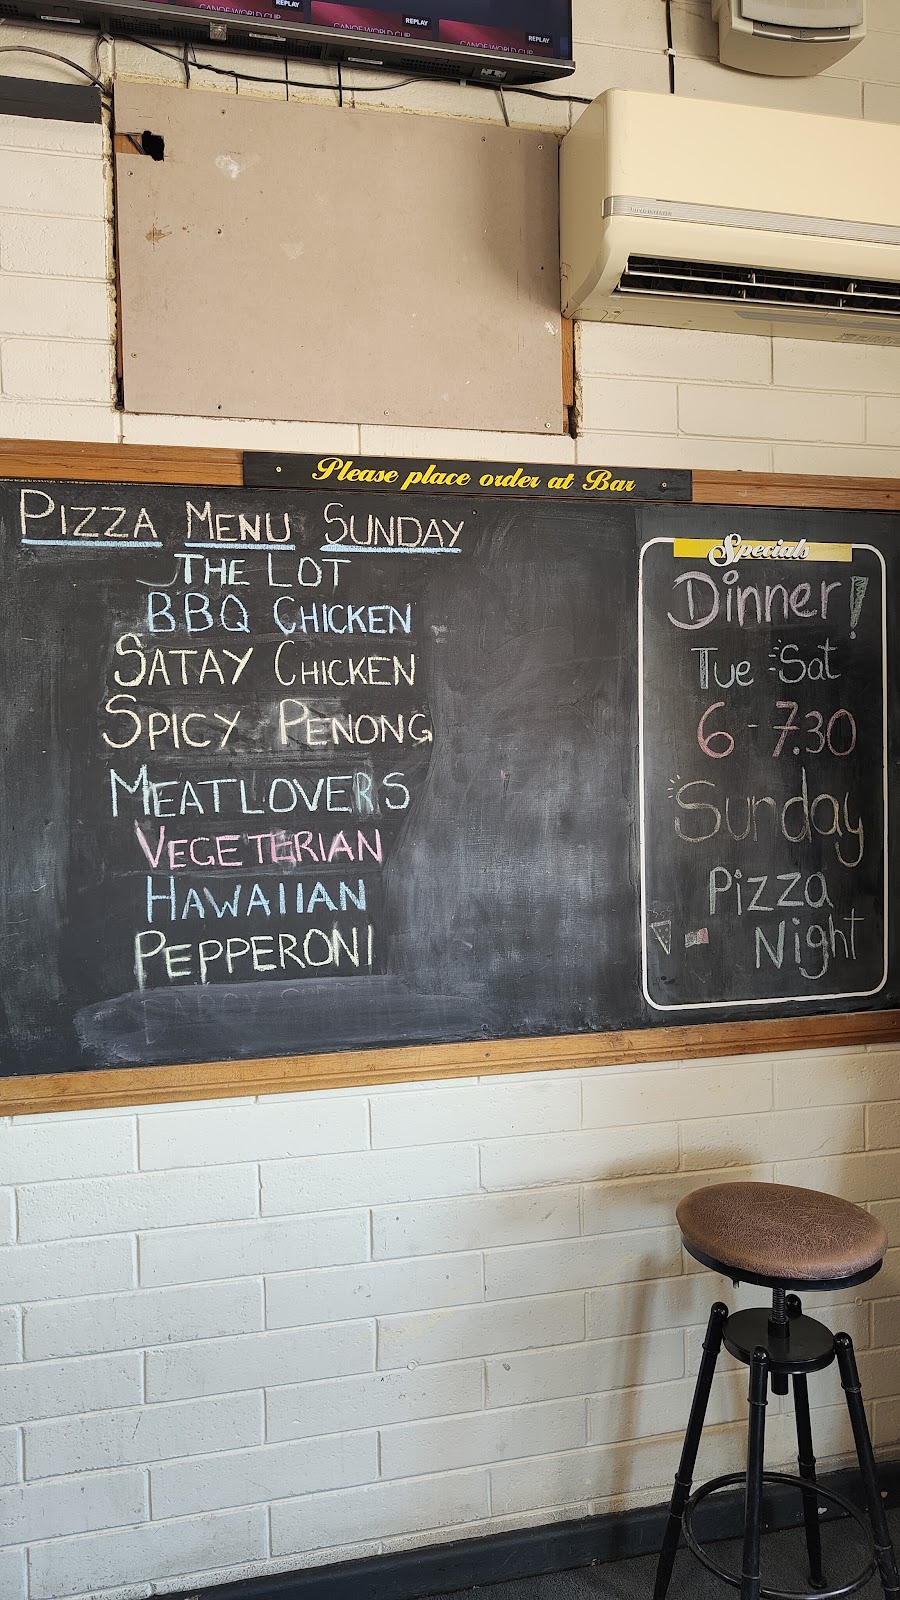 REPLAY
REPLAY
REPLAY
CANOE WORLD CUP
CANOE WORLD CUP
CANOE WORLD CUP
Please place order at Bar
PIZZA MENU SUNDAY
THE LOT
BBQ CHICKEN
SATAY CHICKEN
SPICY PENONG
MEATLOVERS
VEGETERIAN
HAWAIIAN
PEPPERONI
Specials
Dinner!
Tue - Sat
6 - 7.30
Sunday
Pizza
Night